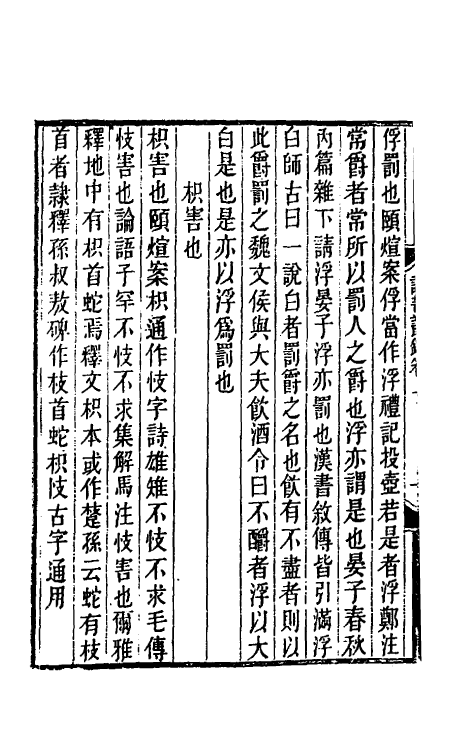 俘罰也頤煊案俘當作浮禮記投壺若是者浮鄭注
常爵者常所以罰人之爵也浮亦謂是也晏子春秋
內篇雜下請浮晏子浮亦罰也漢書敘傳皆引滿浮
白師古曰一說白者罰爵之名也飲有不盡者則以
此爵罰之魏文侯與大夫飲酒令曰不釂者浮以大
白是也是亦以浮爲罰也
枳害也
枳害也頤煊案枳通作忮字詩雄雉不忮不求毛傳
忮害也論語子罕不忮不求集解馬注忮害也爾雅
釋地中有枳首蛇焉釋文枳本或作㨖孫云蛇有枝
首者隸釋孫叔敖碑作枝首蛇枳忮古字通用